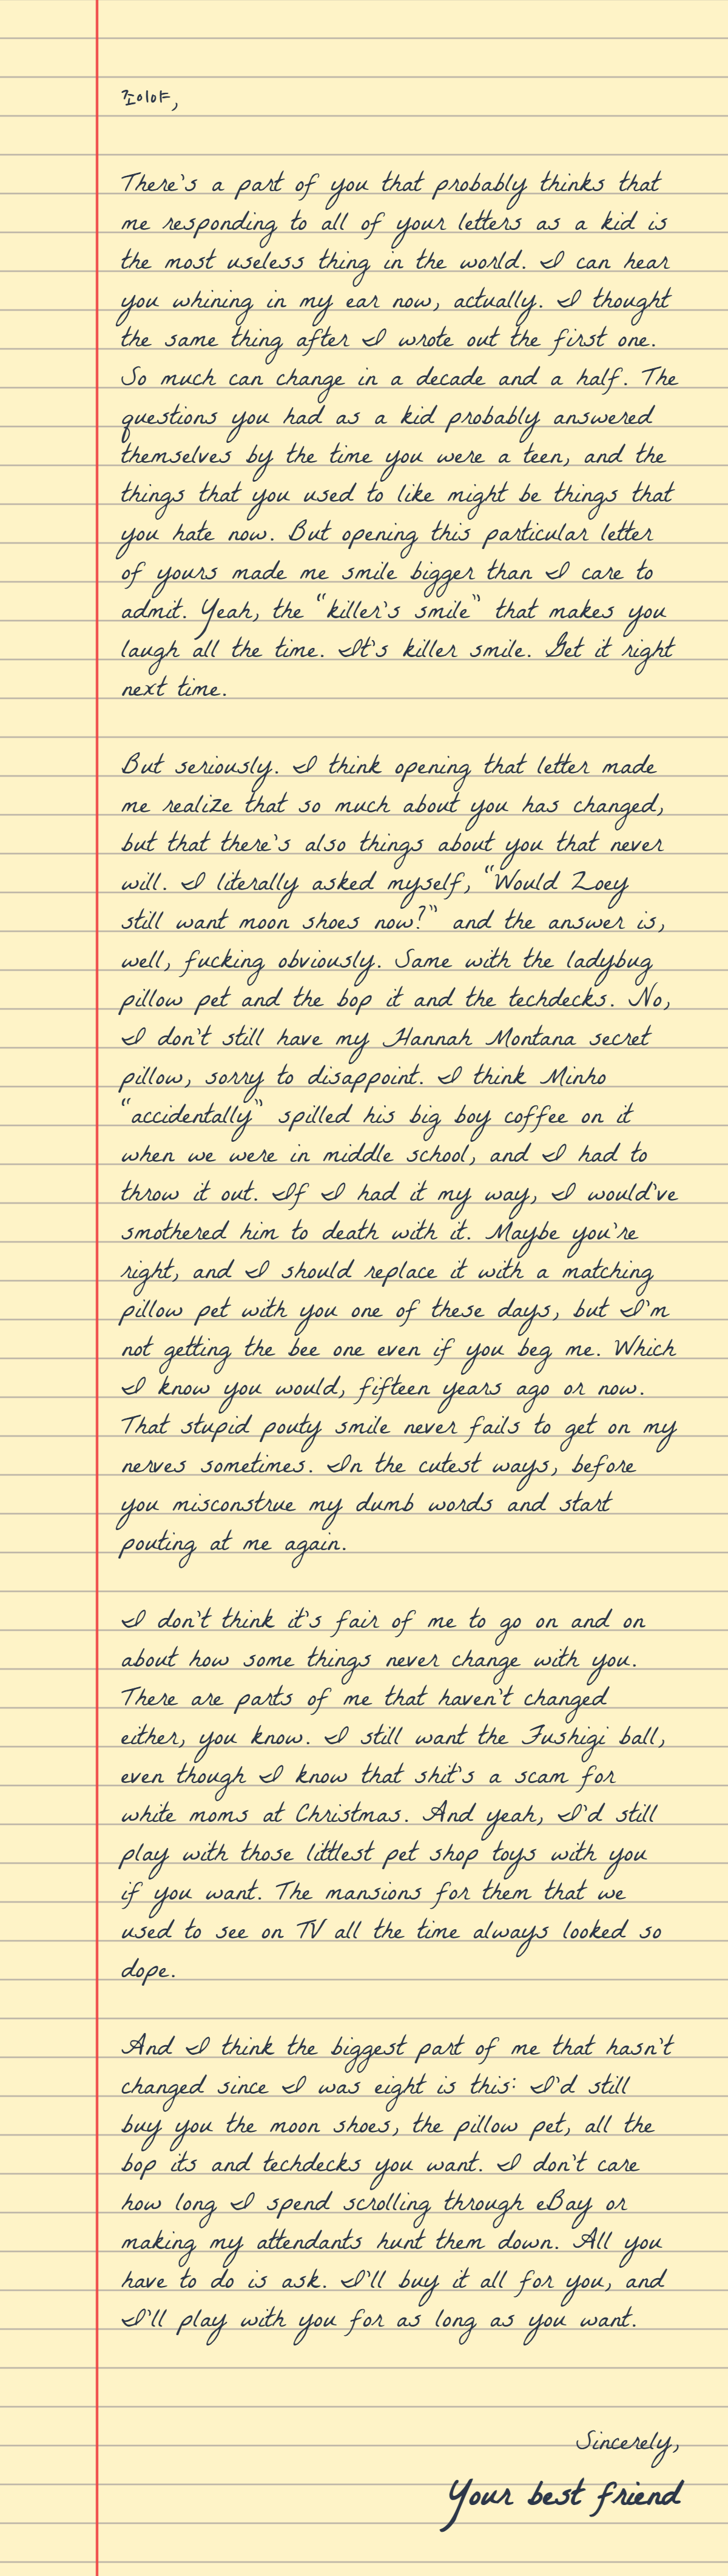 조이야,
There's a part of you that probably thinks that
me responding to all of your letters as a kid is
the most useless thing in the world. I can hear
you whining in my ear now, actually. I thought
the same thing after I wrote out the first one.
So much can change in a decade and a half. The
questions you had as a kid probably answered
themselves by the time you were a teen, and the
things that you used to like might be things that
you hate now. But opening this particular letter
of yours made me smile bigger than I care to
admit. Yeah, the “killer's smile” that makes you
laugh all the time. It's killer smile. Get it right
next time.
But seriously. I think opening that letter made
me realize that so much about you has changed,
but that there's also things about you that never
will. I literally asked myself, “Would Zoey
still want moon shoes now?” and the answer is,
well, fucking obviously. Same with the ladybug
pillow pet and the bop it and the techdecks. No,
I don't still have my Hannah Montana secret
pillow, sorry to disappoint. I think Minho
“accidentally” spilled his big boy coffee on it
when we were in middle school, and I had to
throw it out. If I had it my way, I would've
smothered him to death with it. Maybe you're
right, and I should replace it with a matching
pillow pet with you one of these days, but I'm
not getting the bee one even if you beg me. Which
I know you would, fifteen years ago or now.
That stupid pouty smile never fails to get on my
nerves sometimes. In the cutest ways, before
you misconstrue my dumb words and start
pouting at me again.
I don't think it's fair of me to go on and on
about how some things never change with you.
There are parts of me that haven't changed
either, you know. I still want the Fushigi ball,
even though I know that shit's a scam for
white moms at Christmas. And yeah, I'd still
play with those littlest pet shop toys with you
if you want. The mansions for them that we
used to see on TV all the time always looked so
dope.
And I think the biggest part of me that hasn't
changed since I was eight is this: I'd still
buy you the moon shoes, the pillow pet, all the
bop its and techdecks you want. I don't care
how long I spend scrolling through eBay or
making my attendants hunt them down. All you
have to do is ask. I'll buy it all for you, and
I'll play with you for as long as you want.
Sincerely,
Your best friend